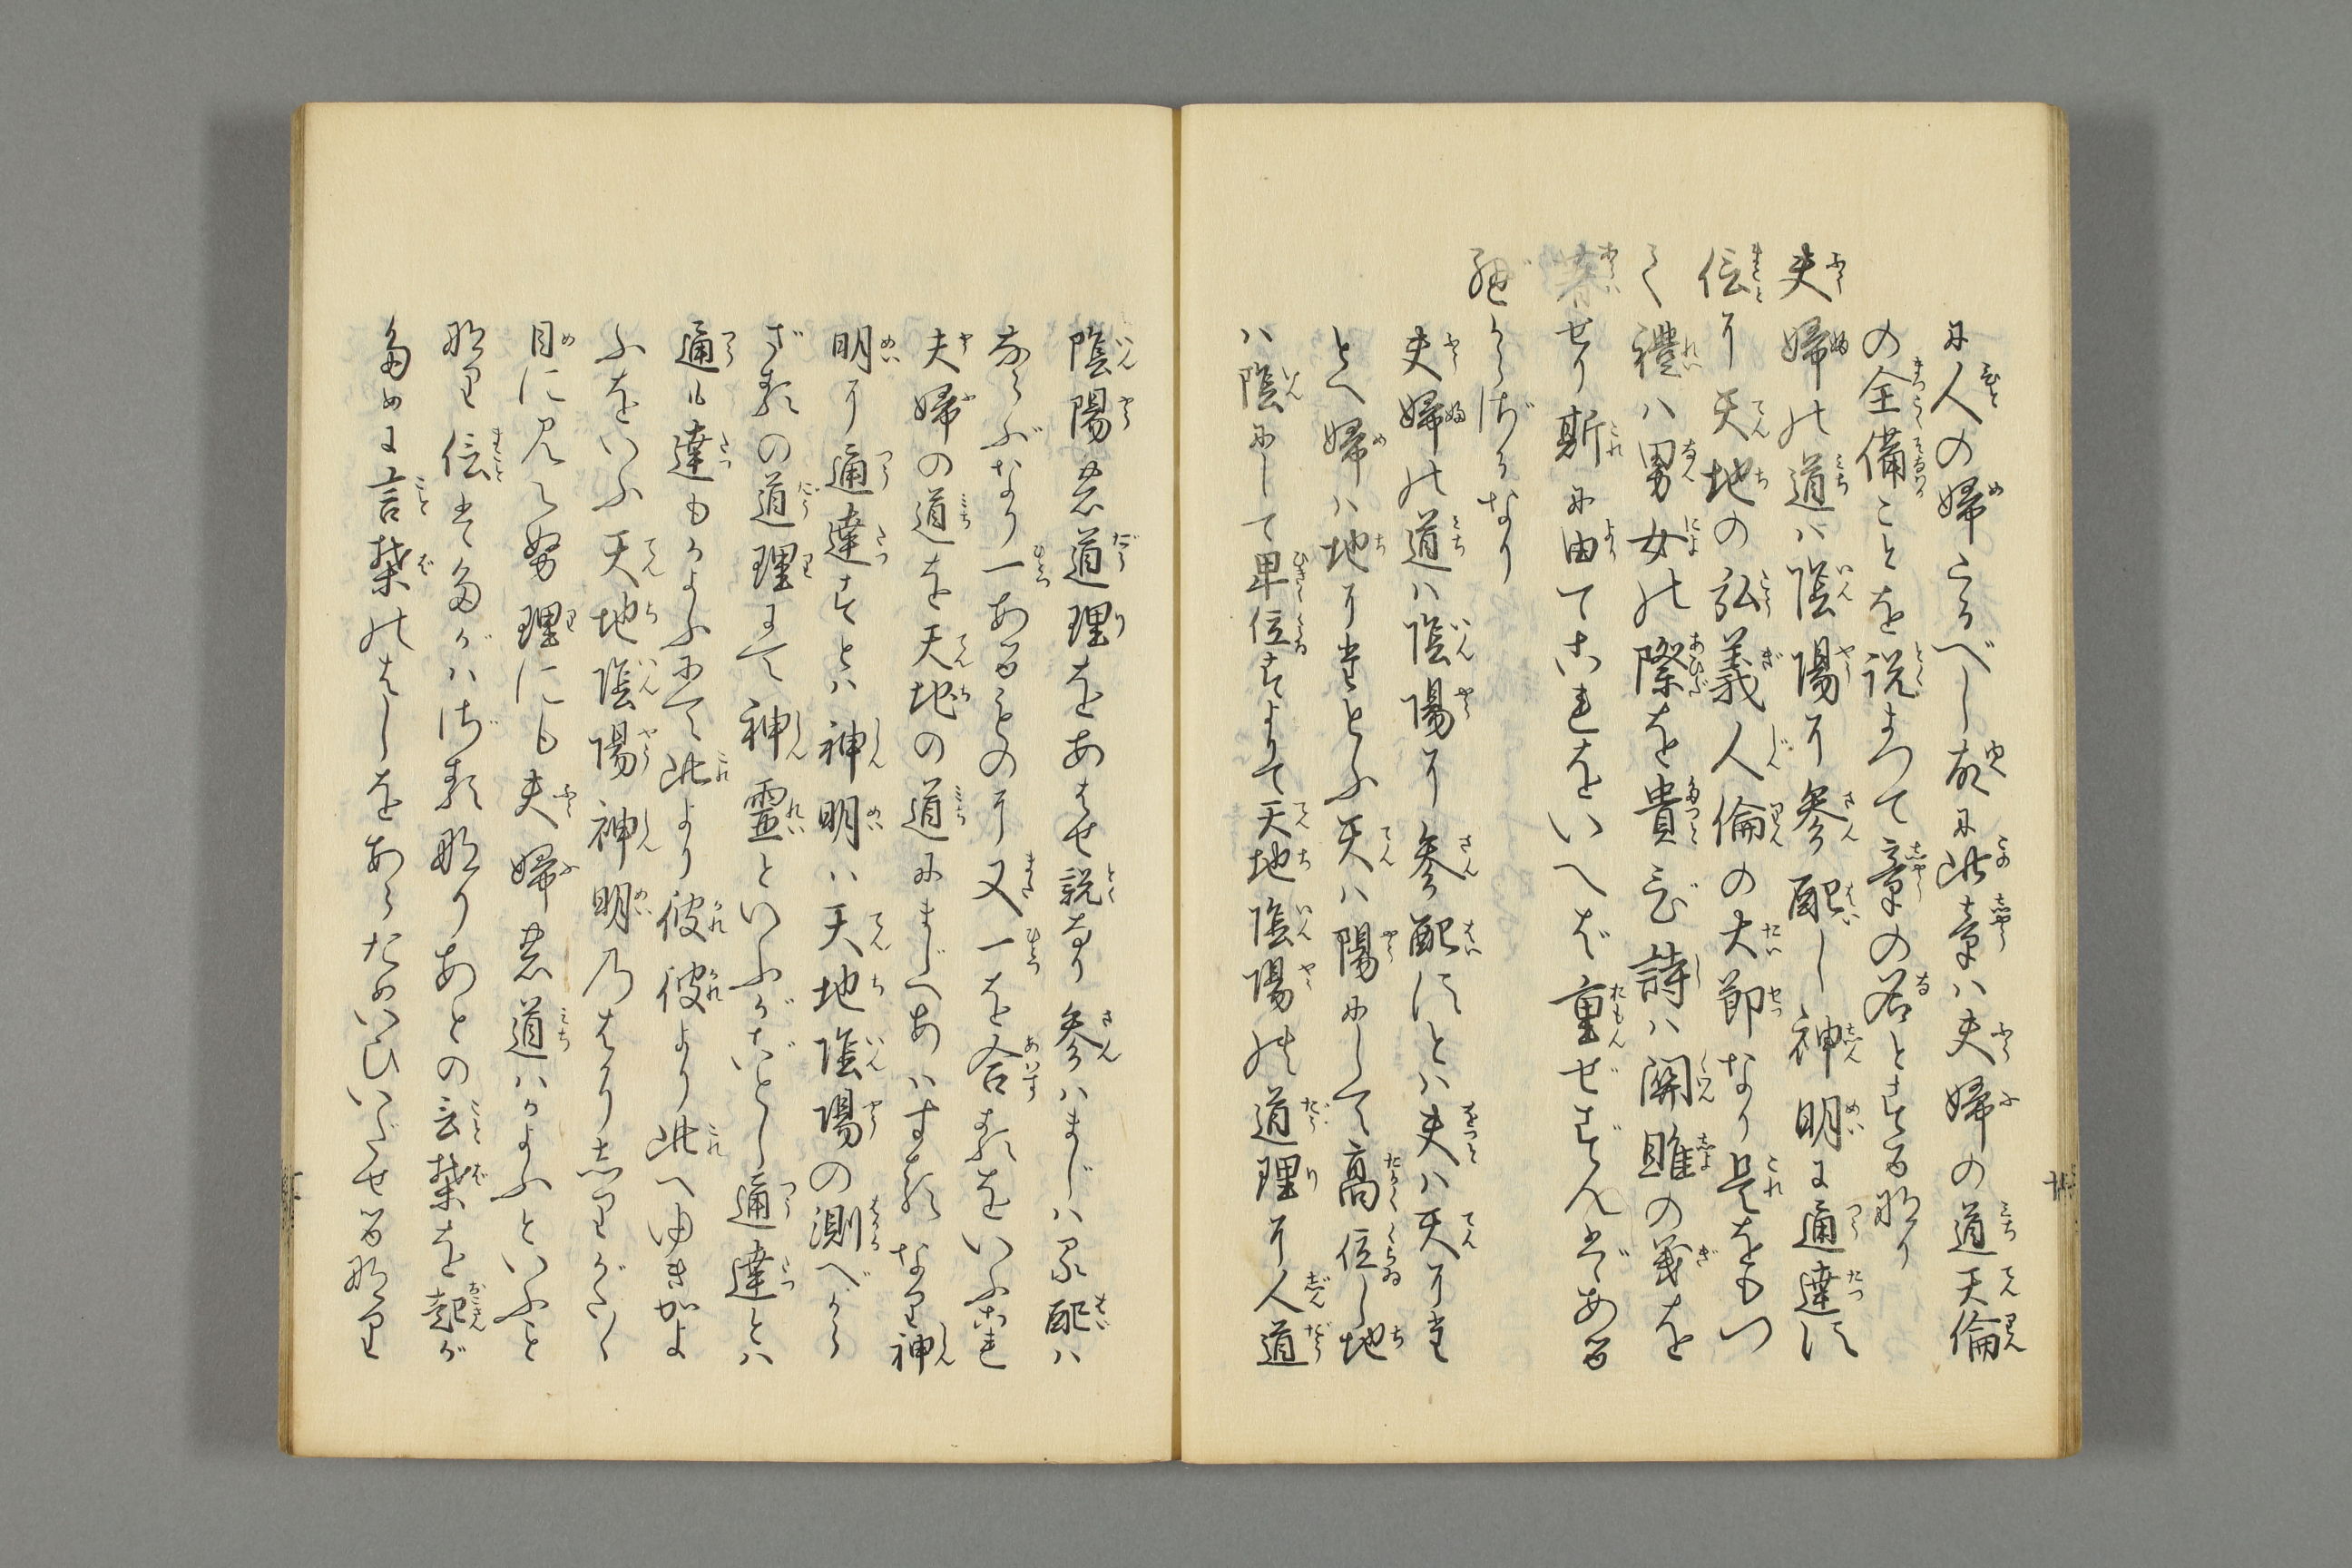 に人の婦たるべし故に此章ハ夫婦の道天倫
の全備ことを説よつて章の名とする也
夫婦の道ハ陰陽に参配し神明に通達す
信に天地の弘義人倫の大節なり是をもつ
て禮ハ男女の際を貴び詩ハ関雎の義を
著せり斯に由てこれをいへば重ぜずんばある
べからざるなり
夫婦の道ハ陰陽に参配すとハ夫ハ天にた
とへ婦ハ地にたとふ天ハ陽にして高位し地
ハ陰にして卑位すよりて天地陰陽の道理に人道
陰陽の道理をあはせ説なり参ハまじハる配ハ
ならぶなり一あるものに又一を合るをいふこれ
夫婦の道を天地の道にまじへあハするなり神
明に通達すとハ神明ハ天地陰陽の測べから
ざるの道理にて神霊といふがごとし通達とハ
通も達もかよふにて此より彼彼より此へゆきかよ
ふをいふ天地陰陽神明乃はかりしりがたく
目に見えぬ理にも夫婦の道ハかよふといふと
なり信にハたがハざるなりあとの言葉を起が
ために言葉のはしをあらためいひいだせるなり